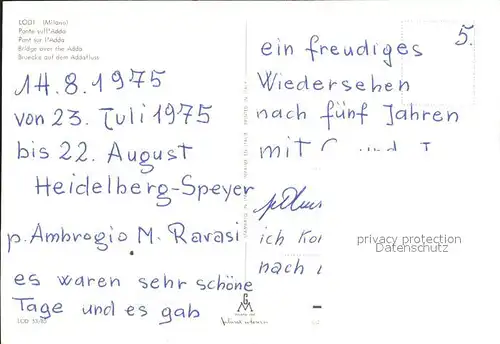 LODI (Milano)
Ponte sull'Adda
Pont sur l'Adda
Bridge over the Adda
Bruecke auf dem Addafluss
14.8.1975
von 23. Juli 1975
bis 22. August
Heidelberg-Speyer
p. Ambrogio M. Ravasi
es waren sehr schöne
Tage und es gab
LOD 33/65
5.
ein freudiges
Wiedersehen
nach fünf Jahren
mit
ich
nach
privacy protection
Datenschutz